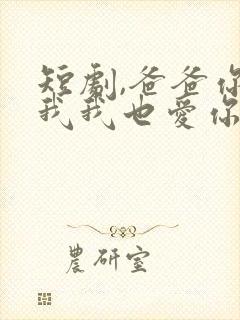 短劇,爸爸你
我我也愛你
農研室